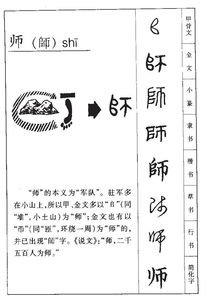 师（師）shī
"师"的本义为"军队"。驻军多
在小山上，所以甲、金文多以"𠂤"(同
"堆"，小土山)为"師"；金文也有以
"帀"(同"匝"，环绕一周)为"師"的，
并已出现"師"字。《说文》："师，二千
五百人为师。"
甲骨文
金文
小篆
隶书
楷书
草书
行书
简化字
𠂤
師
師
師
師
师
师
师